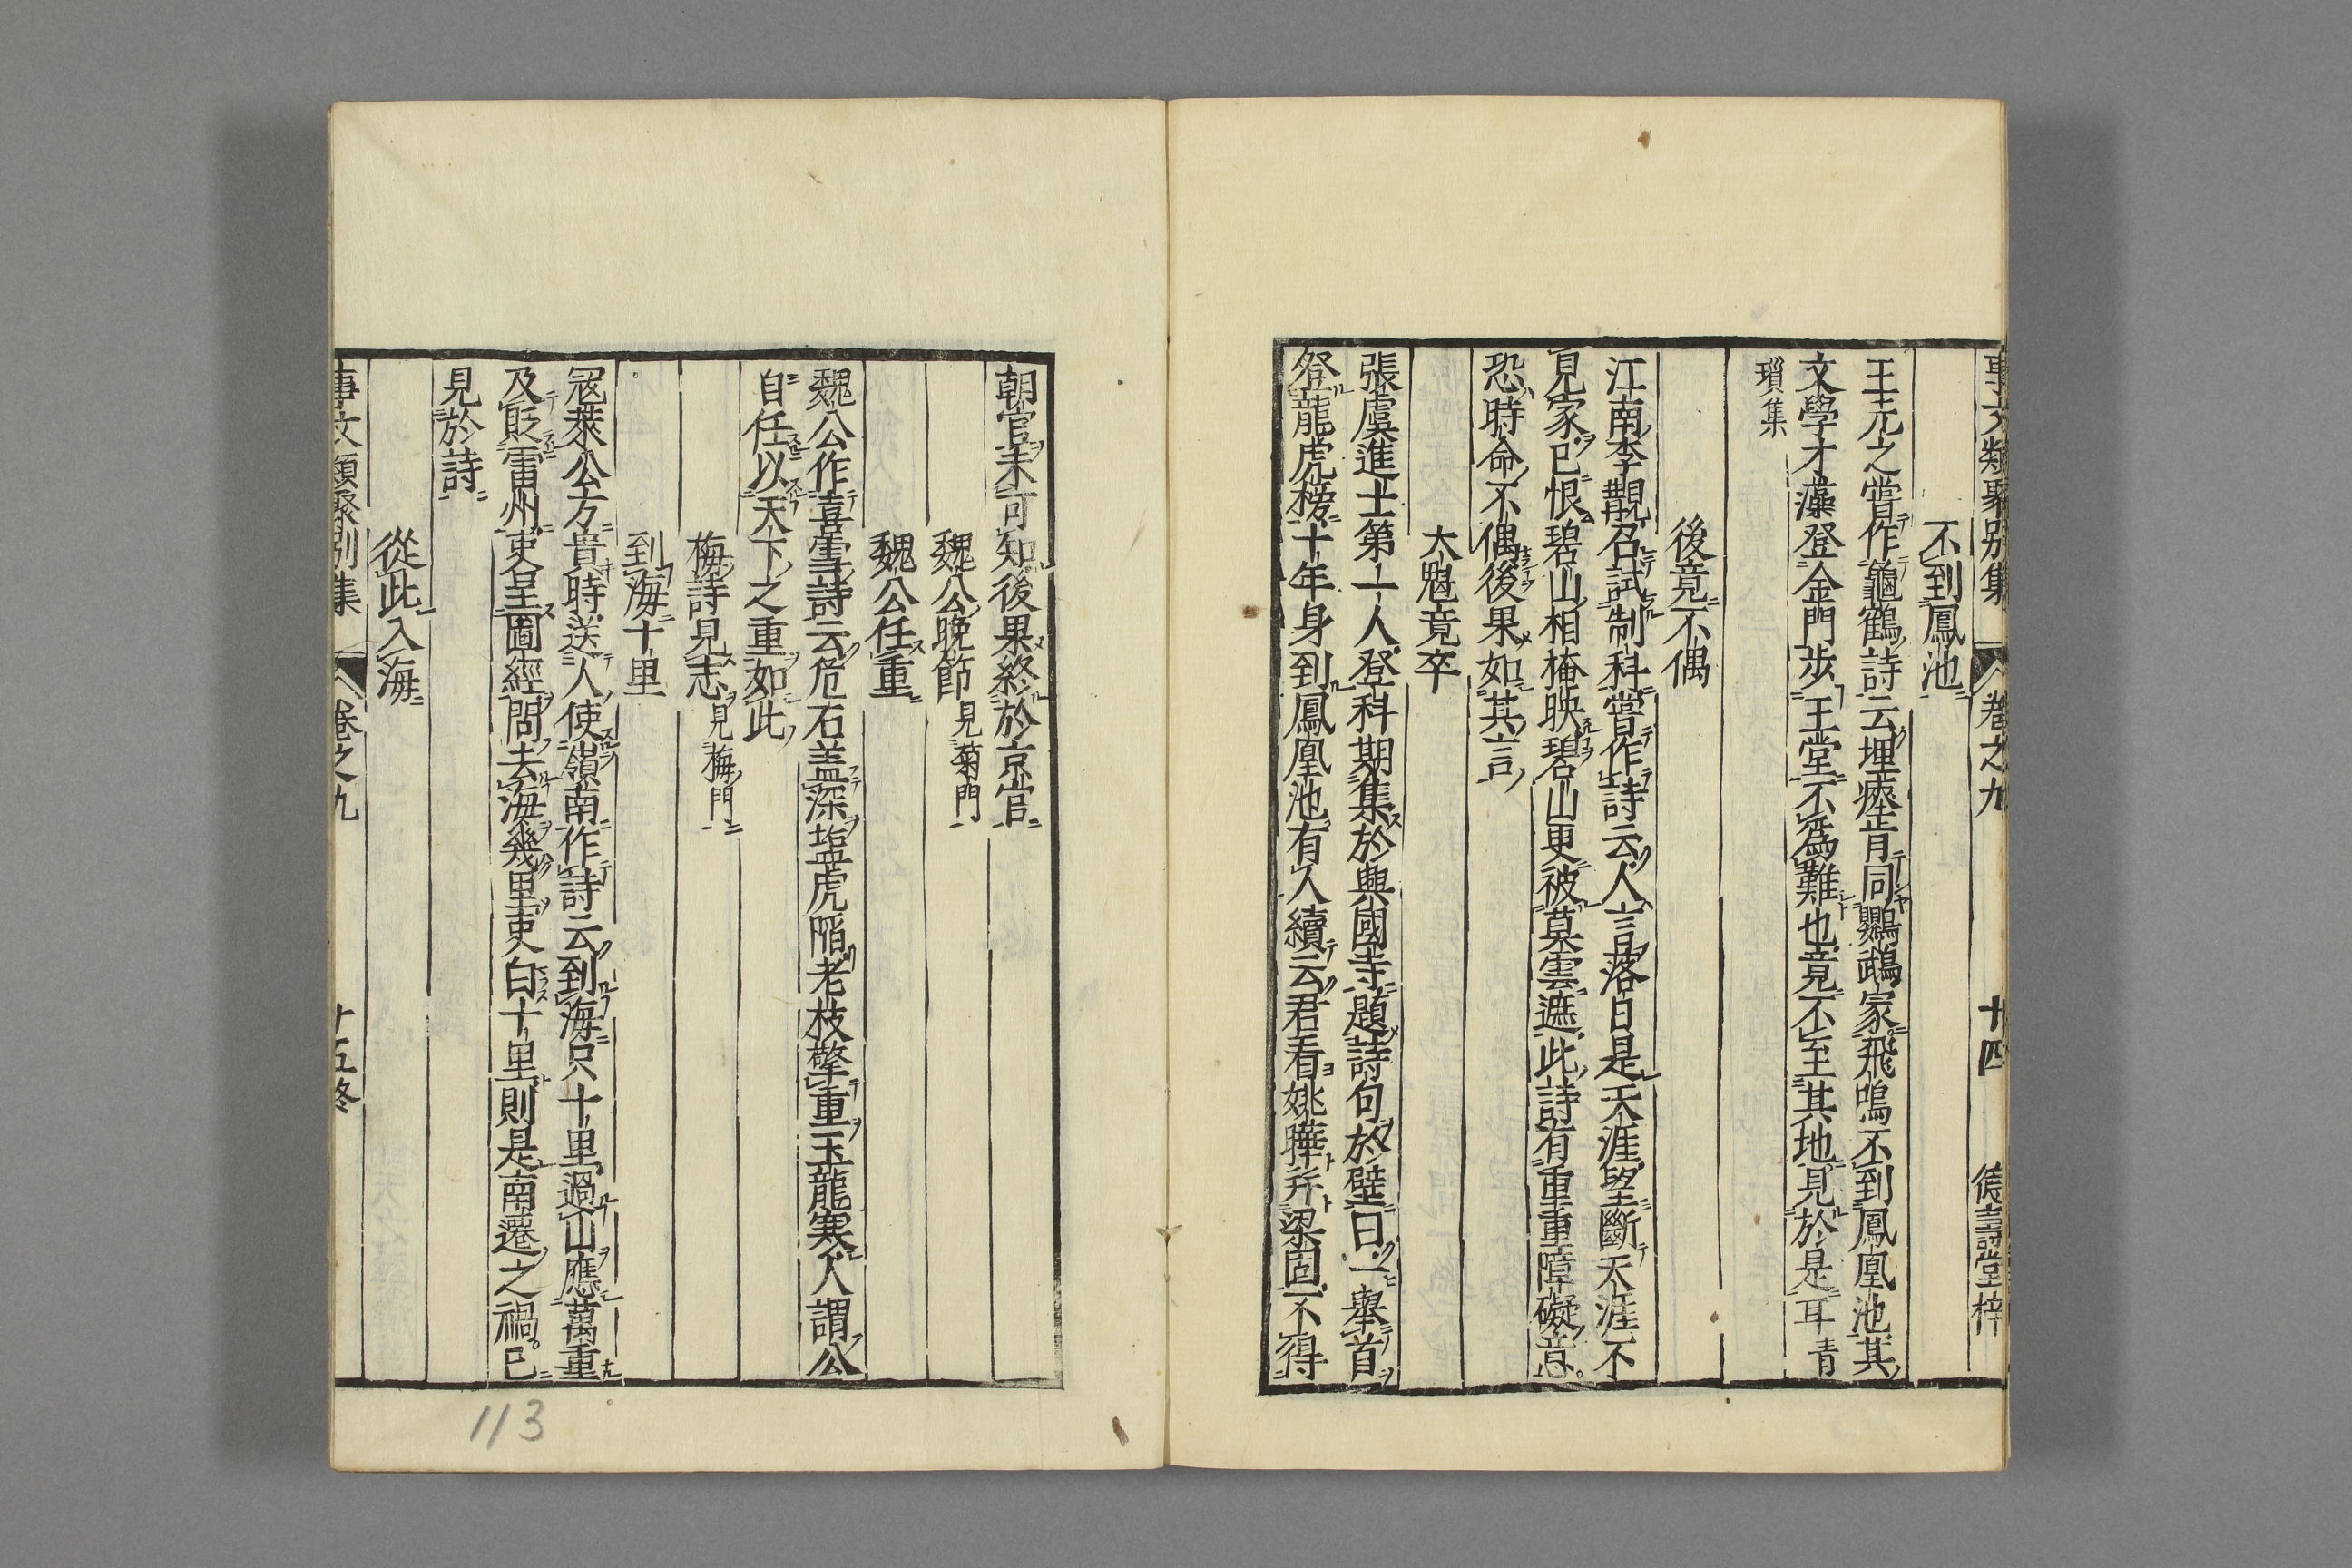 事文類聚別集 卷之九 十四 德壽堂梓
不到鳳池
王元之嘗作龜鶴詩云埋瘞肯同鸚鵡家飛鳴不到鳳凰池其
文學才藻登金門步玉堂不爲難也竟不至其地見於是耳青
瑣集
後竟不偶
江南李覯召試制科嘗作詩云人言落日是天涯望斷天涯不
見家已恨碧山相掩映碧山更被莫雲遮此詩有重重障礙意
恐時命不偶後果如其言
大魁竟卒
張虞進士第一人登科期集於興國寺題詩句於壁曰一舉首
登龍虎榜十年身到鳳凰池有人續云君看姚曄幷梁固不得
朝官未可知後果終於京官
魏公晚節見菊門
魏公任重
魏公作喜雪詩云危石盖深塩虎陷老枝擎重玉龍寒人謂公
自任以天下之重如此
梅詩見志見梅門
到海十里
寇萊公方貴時送人使嶺南作詩云到海只十里過山應萬重
及貶雷州吏呈圖經問去海幾里吏白十里則是南遷之禍已
見於詩
從此入海
事文類聚別集 卷之九 十五終
113